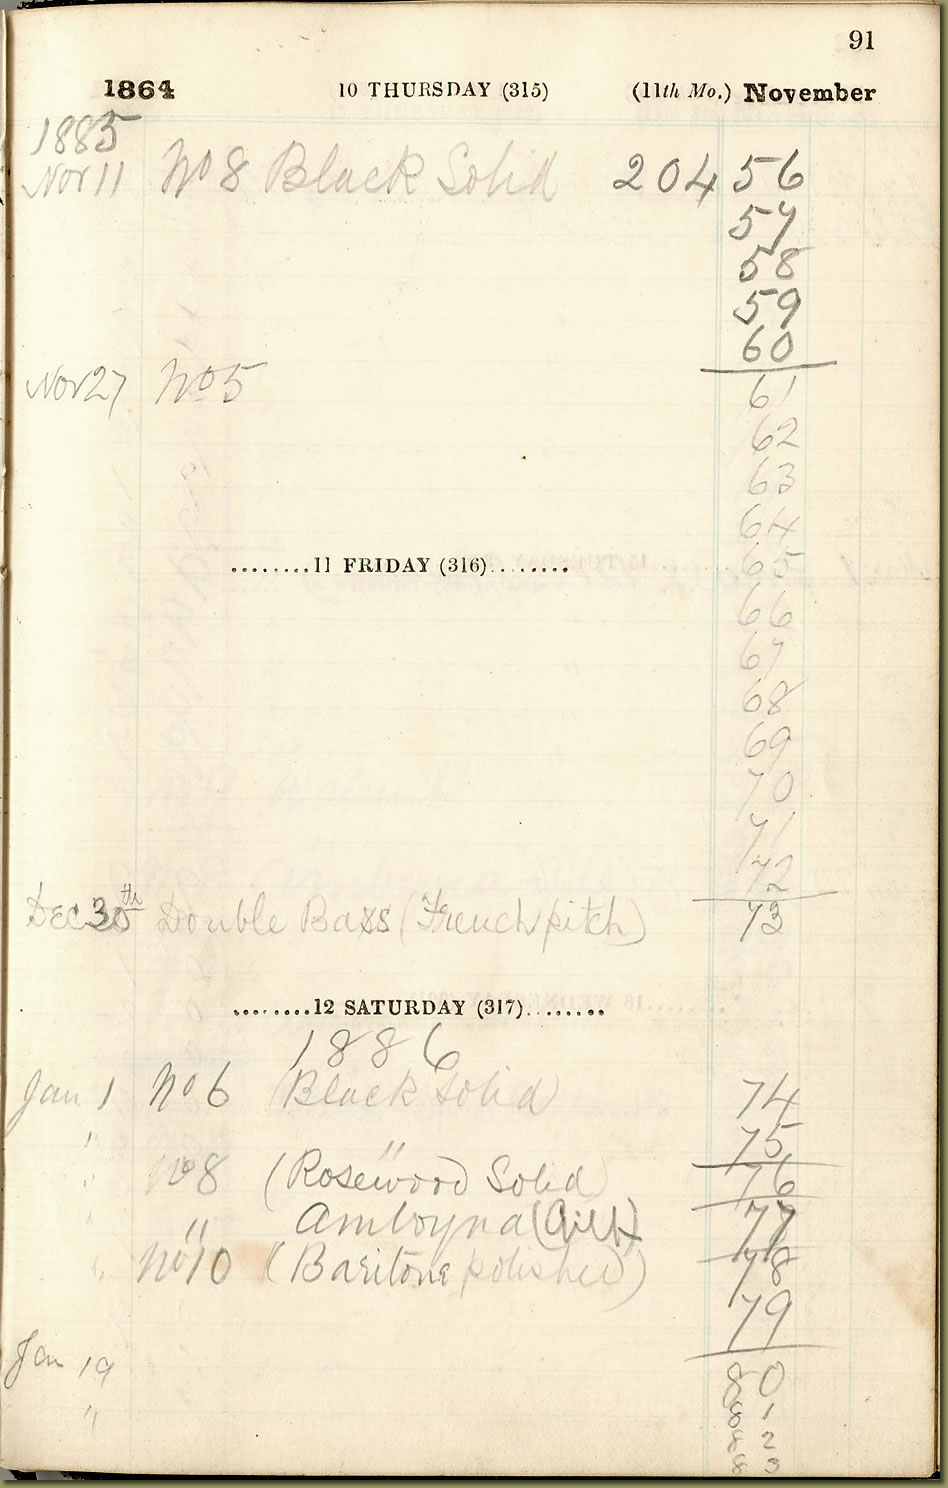 91
1864 10 THURSDAY (315) (11th Mo.) November
1885
Nov 11 No 8 Black Solid 204 56
57
58
59
60
Nov 27 No 5 61
62
63
64
........11 FRIDAY (316)........ 65
66
67
68
69
70
71
72
Dec 30th Double Bass (French pitch) 73
........12 SATURDAY (317)........
1886
Jan 1 No 6 (Black Solid) 74
" " 75
" No 8 (Rosewood Solid) 76
" " Amboyna (Gilt) 77
" No 10 (Baritone polished) 78
79
Jan 19 80
" 81
82
83